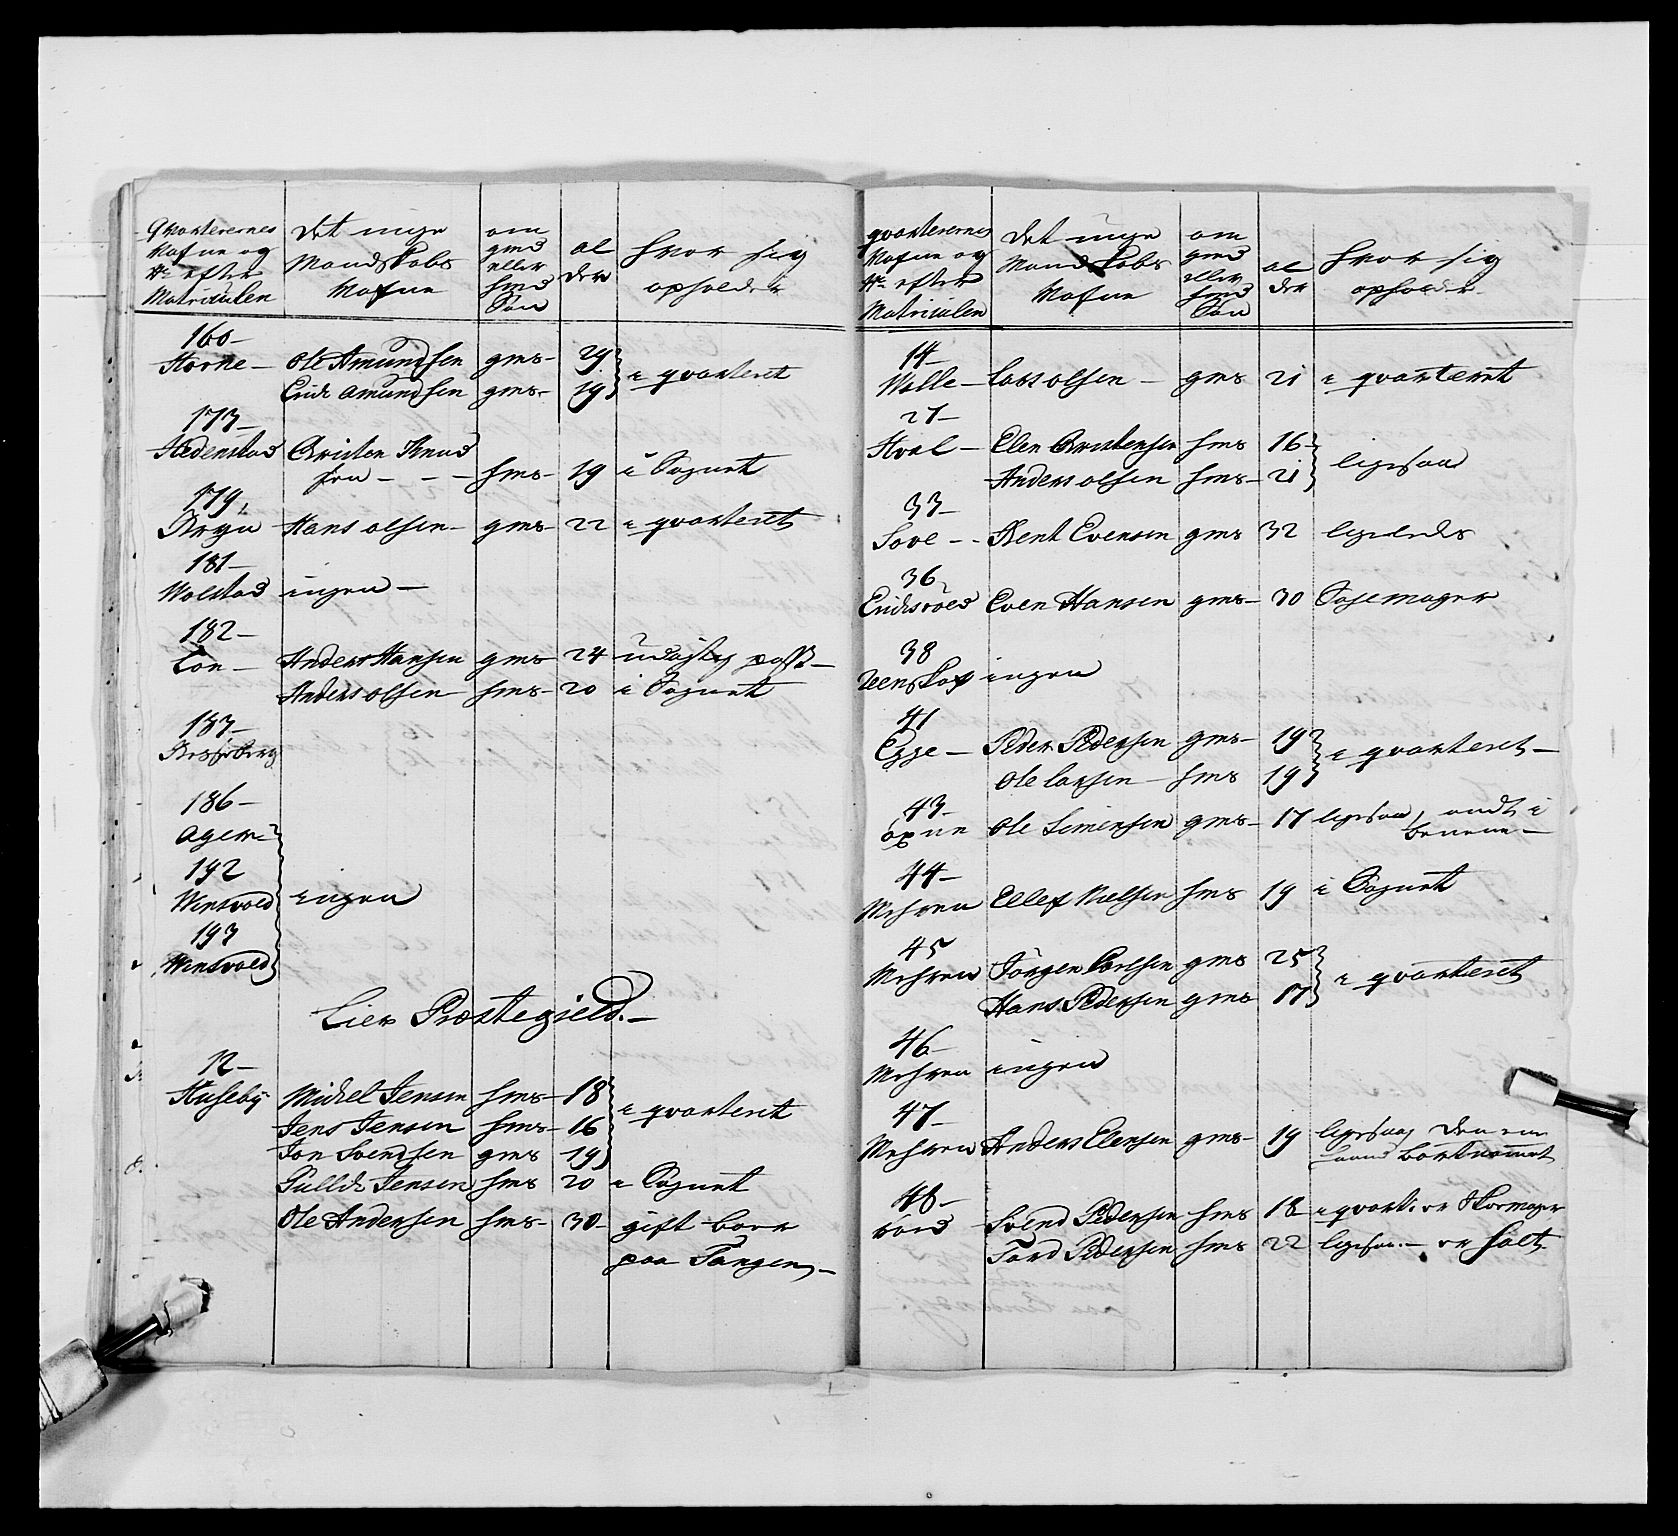 Qvarterernes Nafne og No efter Matriculen | Det unge Mandskabs Nafne | om gmd eller hmd Søn | alder | hvor sig opholder
160-
Horne - Ole Amundsen gms- 29 } i qvarteret
Erich Amundsen gms- 19 }
173-
Hedenstad Christen Knud
sen - - - hms- 19 i Sognet
179,
Bryn Hans olsen- gms- 22 i qvarteret
181-
Wolstad ingen-
182-
Lon- Anders Hansen gms- 24
Anders olsen hms- 20 i Sognet
183-
186-
ager-
192
Winsvold ingen
193
Winsvold
Lier Præstegield.-
12-
Huseby Michel Jensen hms- 18 } i qvarteret
Jens Jensen hms- 16 }
Jon Svendsen gms 19 }
Gullich Jensen hms 20 i Sognet
Ole Andersen hms- 30- gift boer
paa Tangen,-
qvarterernes Nafne og No efter Matriculen | Det unge Mandskabs Nafne | om gmd eller hmd Søn | alder | hvor sig opholder
14-
Wille- Lars olsen- gms 21 i qvarteret
27-
Hval- Elen Christensen hms 16- } ligesaa
Anders olsen hms- 21 }
33-
Sove-- Bent Evensen gms 32 ligeledes
36,
Erichsröed Even Hansen gms- 30 Sagemager
38
Reenskoug ingen
41
Egge- Peder Pedersen gms- 19 } i qvarteret-
Ole Larsen- hms 19 }
43-
Ole Simensen gms- 17 ligesaa, ondt i
Benene-
44-
Mehren Ellef Nielsen hms 19 i Sognet
45
Mehren Jörgen Carlsen gms 25 } i qvarteret
Hans Pedersen gms 17 }
46-
Mehren ingen
47-
Mehren Anders Elensen gms- 19 ligesaa, den ene
haand bortkommet
48-
Svend Pedersen hms 18 i qvart: er Skoemager
Tord Pedersen hms 22 ligesaa.- er halt